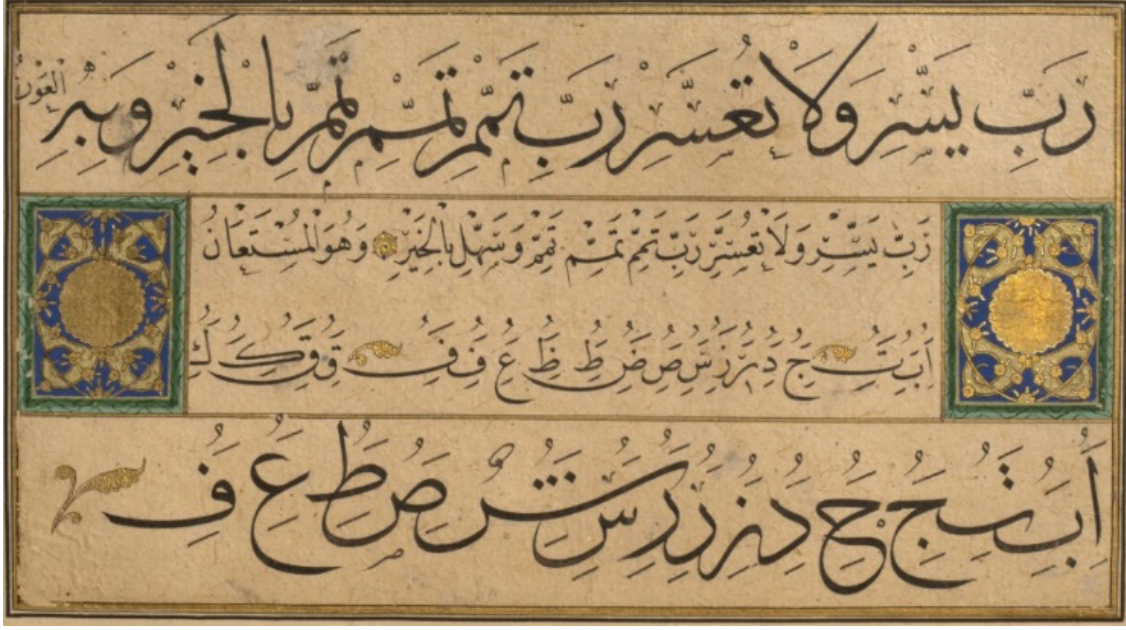 رَبِّ يَسِّرْ وَلَا تُعَسِّرْ رَبِّ تَمِّمْ تَمِّمْ تَمِّمْ بِالْخَيْرِ وَبِهِ الْعَوْنُ
رَبِّ يَسِّرْ وَلَا تُعَسِّرْ رَبِّ تَمِّمْ تَمِّمْ تَمِّمْ وَسَهِّلْ بِالْخَيْرِ وَهُوَ الْمُسْتَعَانُ
ا ب ت ج د ر ز س ص ض ط ظ ع ف ف ق ق ك ك
ا ب ث ج ح د ر ر س ش ص ط ع ف